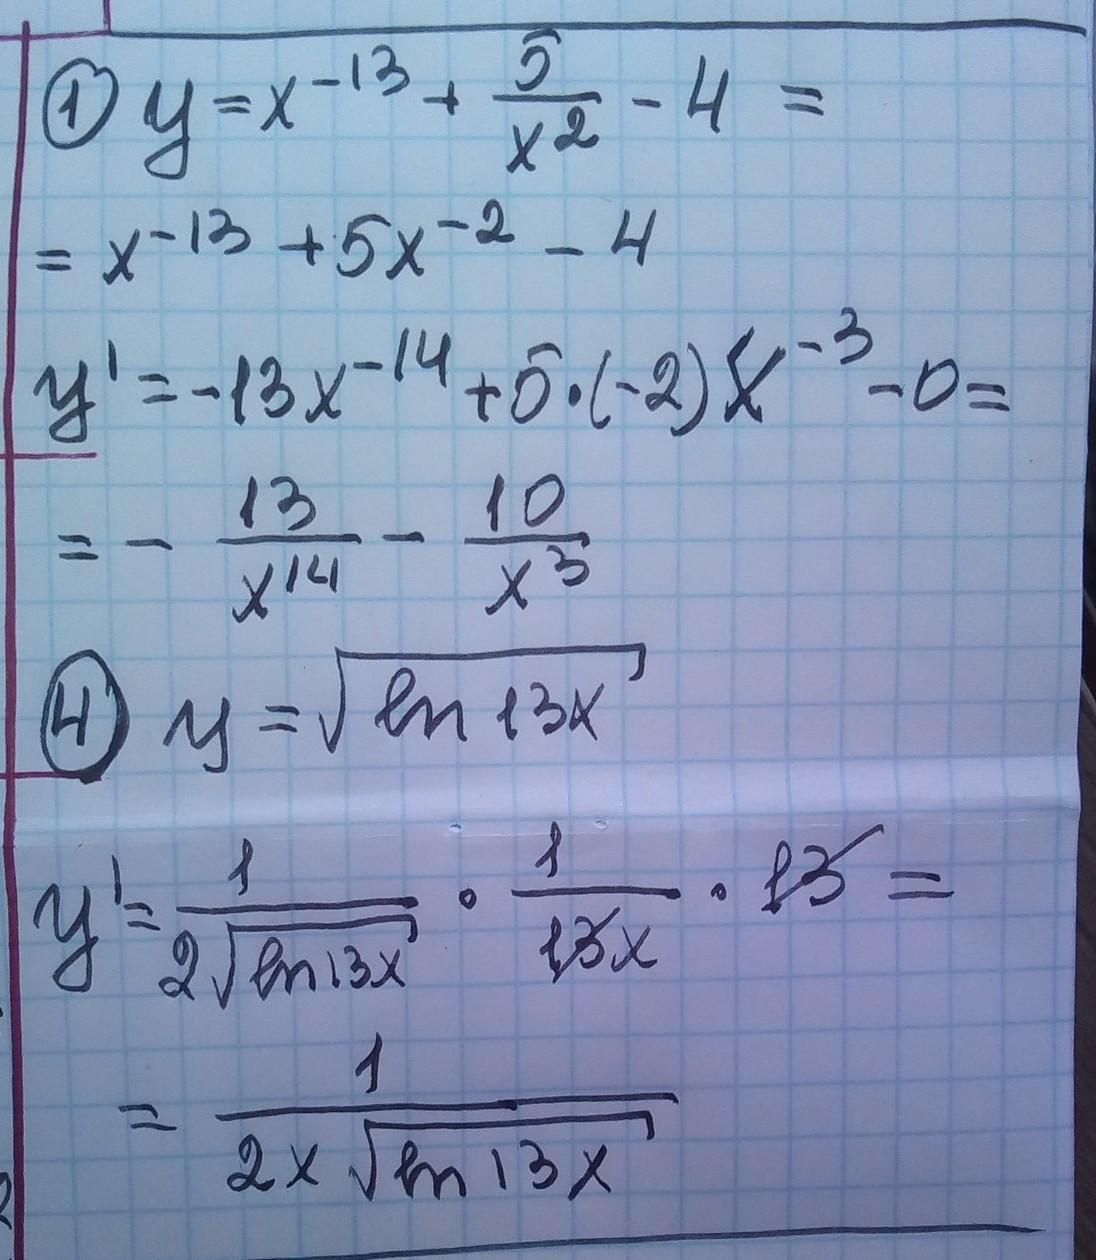 ① y = x⁻¹³ + 5/x² - 4 =
= x⁻¹³ + 5x⁻² - 4
y' = -13x⁻¹⁴ + 5·(-2)x⁻³ - 0 =
= - 13/x¹⁴ - 10/x³
④ y = √(ln 13x)
y' = 1/(2√(ln 13x)) · 1/(13x) · 13 =
= 1/(2x √(ln 13x))